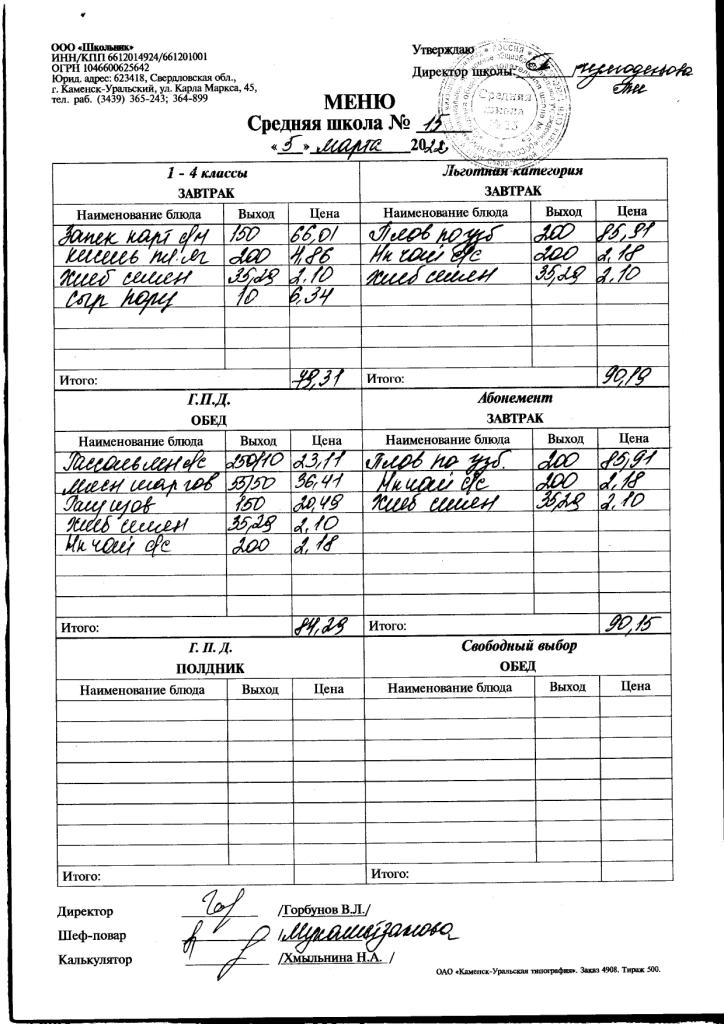 ООО «Школьник»
ИНН/КПП 6612014924/661201001
ОГРН 1046600625642
Юрид. адрес: 623418, Свердловская обл.,
г. Каменск-Уральский, ул. Карла Маркса, 45,
тел. раб. (3439) 365-243; 364-899
Утверждаю
Директор школы:
РОССИЯ
Средняя
школа
№ 15
МЕНЮ
Средняя школа № 15
« 5 » марта 2022
1 - 4 классы Льготная категория
ЗАВТРАК ЗАВТРАК
Наименование блюда Выход Цена Наименование блюда Выход Цена
Запек карт с/м 150 66,01 Плов по узб 200 85,91
кисель пл.яг 200 4,86 Нк чай с/с 200 2,18
Хлеб семен 35,29 2,10 Хлеб семен 35,29 2,10
Сыр пору 10 6,34
Итого: 79,31 Итого: 90,19
Г.П.Д. Абонемент
ОБЕД ЗАВТРАК
Наименование блюда Выход Цена Наименование блюда Выход Цена
Рассольн лен с/с 250/10 23,11 Плов по узб. 200 85,91
55/50 36,41 Нк чай с/с 200 2,18
150 20,49 Хлеб семен 35,29 2,10
Хлеб семен 35,29 2,10
Нк чай с/с 200 2,18
Итого: 84,29 Итого: 90,15
Г. П. Д. Свободный выбор
ПОЛДНИК ОБЕД
Наименование блюда Выход Цена Наименование блюда Выход Цена
Итого: Итого:
Директор /Горбунов В.Л./
Шеф-повар /
Калькулятор /Хмыльнина Н.А. /
ОАО «Каменск-Уральская типография». Заказ 4908. Тираж 500.